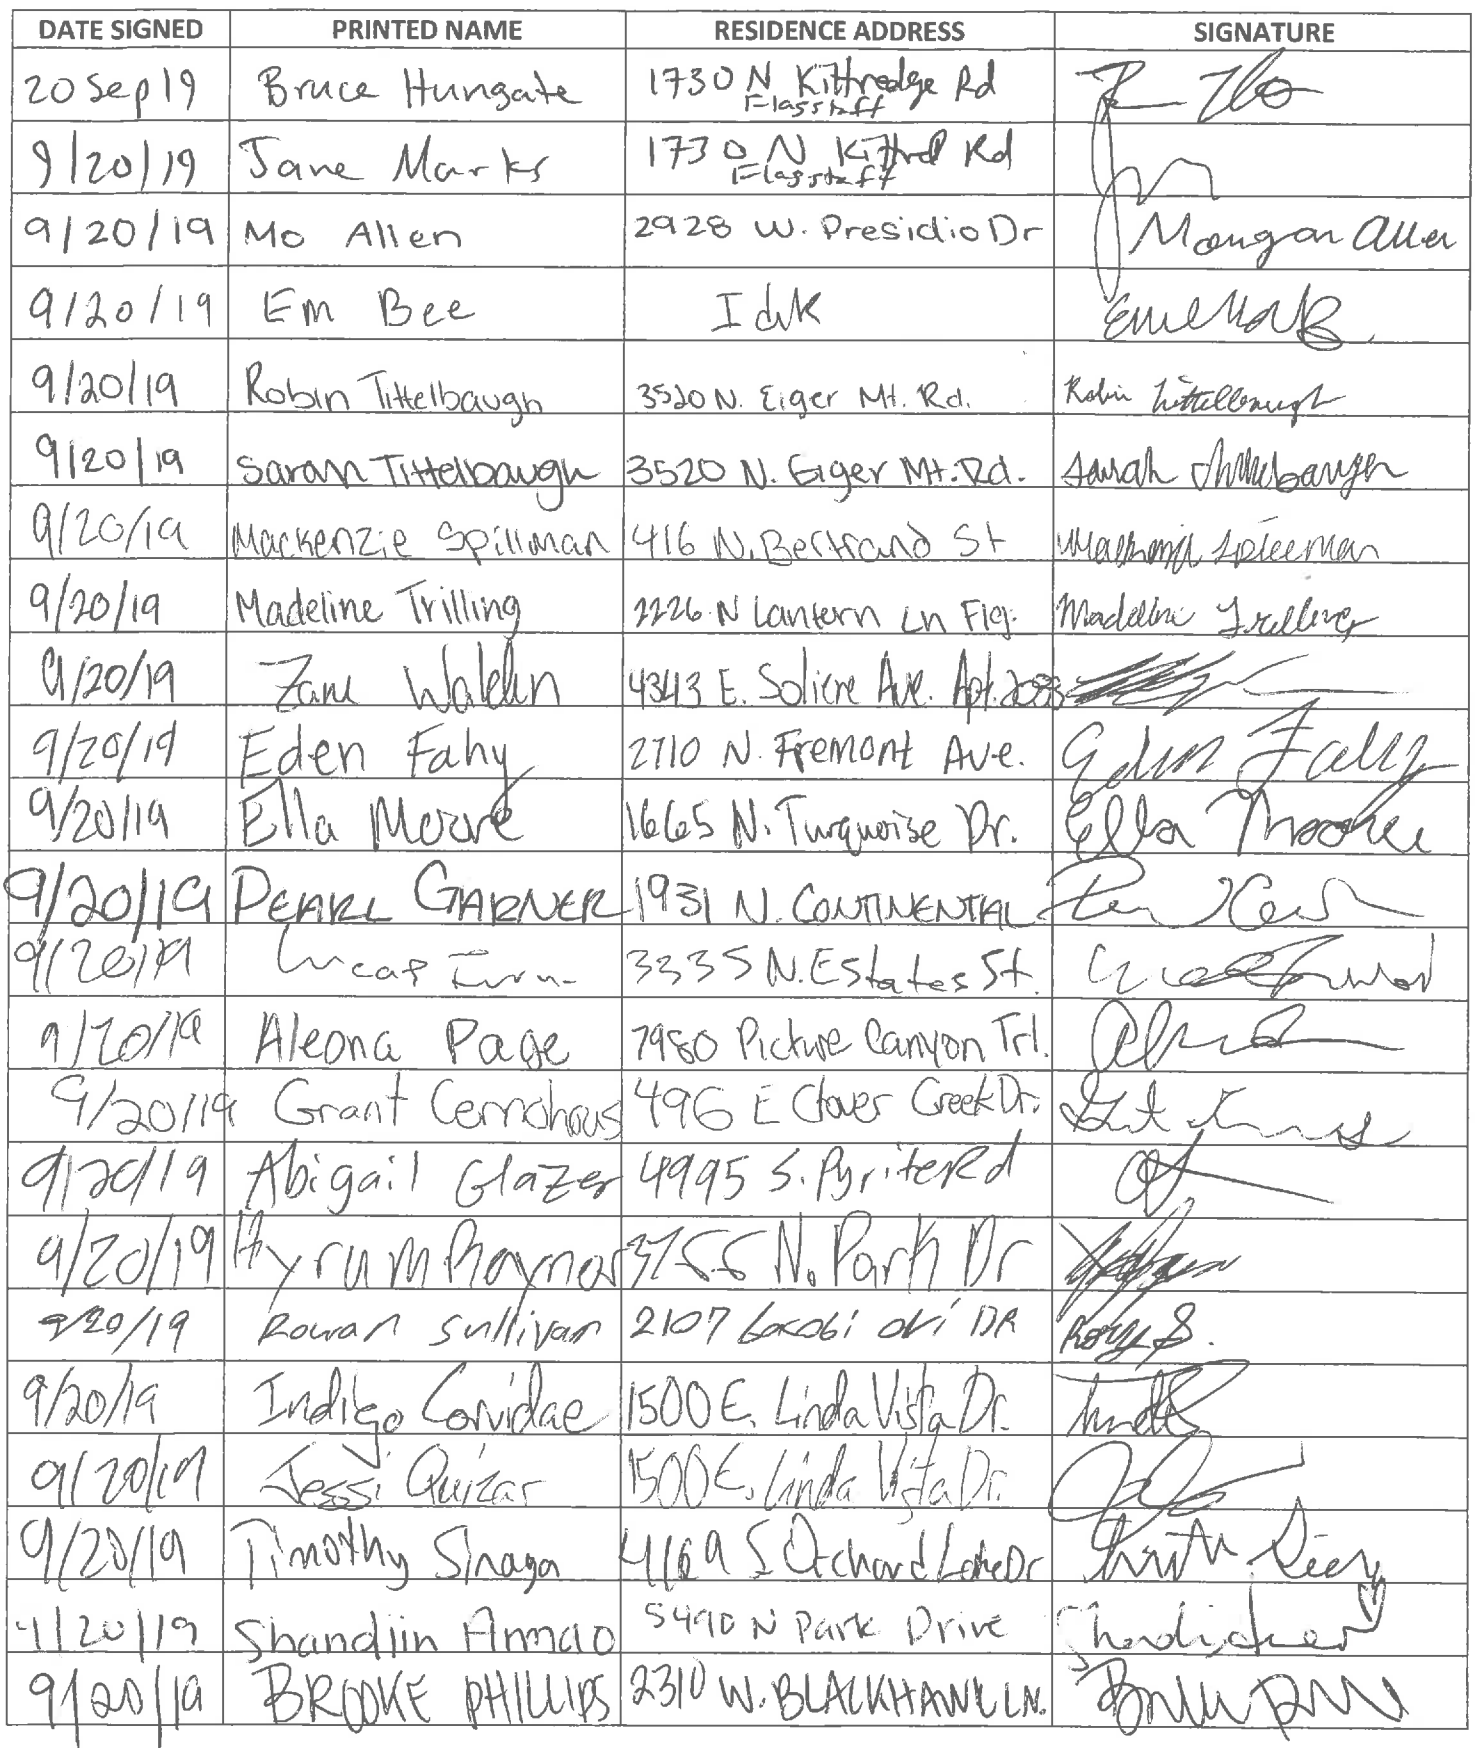 DATE SIGNED PRINTED NAME RESIDENCE ADDRESS SIGNATURE
20 Sep 19 Bruce Hungate 1730 N Kittredge Rd
Flagstaff
9/20/19 Jane Marks 1730 N Kittred Rd
Flagstaff
9/20/19 Mo Allen 2928 W. Presidio Dr Morgan Allen
9/20/19 Em Bee Idk
9/20/19 Robin Tittelbaugh 3520 N. Eiger Mt. Rd. Robin Tittelbaugh
9/20/19 Sarah Tittelbaugh 3520 N. Eiger Mt. Rd. Sarah Tittelbaugh
9/20/19 Mackenzie Spillman 416 N. Bertrand St Mackenzie Spillman
9/20/19 Madeline Trilling 2226 N Lantern Ln Flg. Madeline Trilling
9/20/19 Zane Walden 4343 E. Soliere Ave. Apt.
9/20/19 Eden Fahy 2710 N. Fremont Ave. Eden Fahy
9/20/19 Ella Moore 1665 N. Turquoise Dr. Ella Moore
9/20/19 PEARL GARNER 1931 N. CONTINENTAL
9/20/19 Lucas 3335 N. Estates St.
9/20/19 Aleona Page 7980 Picture Canyon Trl.
9/20/19 Grant Cernohous 496 E Clover Creek Dr.
9/20/19 Abigail Glazer 4995 S. Pyrite Rd
9/20/19 Hyrum Raynor N. Park Dr
9/20/19 Rowan Sullivan 2107 DR
9/20/19 Indigo Corvidae 1500 E. Linda Vista Dr.
9/20/19 Jessi Quizar 1500 E. Linda Vista Dr.
9/20/19 Timothy Sinaga 4169 S Orchard Lake Dr
9/20/19 Shandiin Armao 5490 N Park Drive
9/20/19 BROOKE PHILLIPS 2310 W. BLACKHAWK LN.